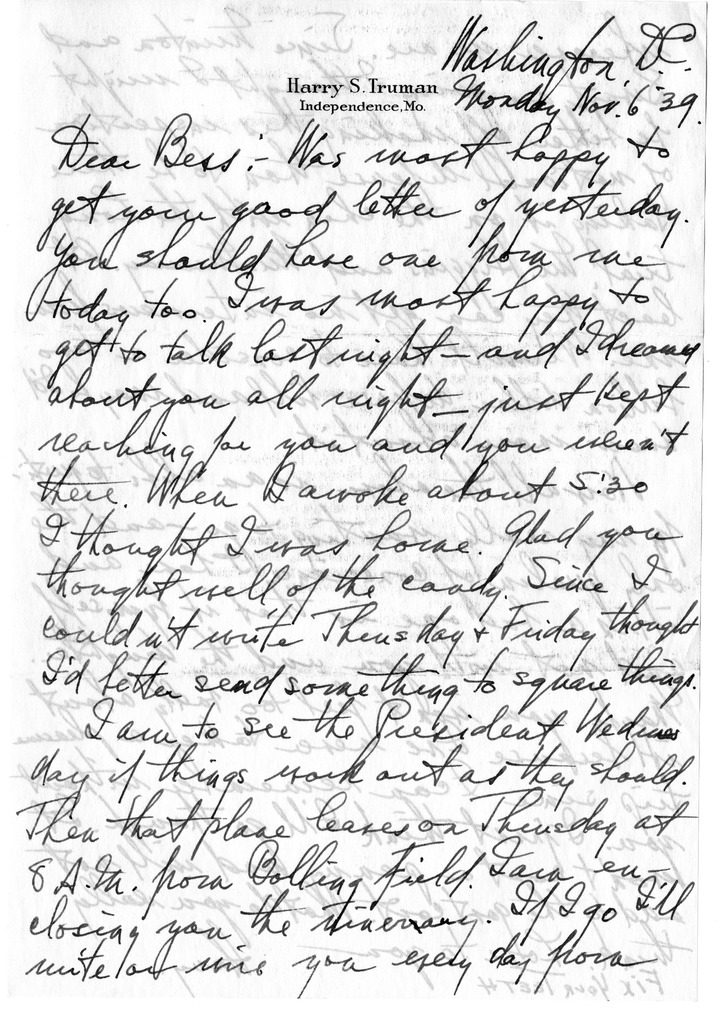 Washington, D.C.
Harry S. Truman
Independence, Mo.
Monday Nov. 6 39.
Dear Bess:- Was most happy to
get your good letter of yesterday.
You should have one from me
today too. I was most happy to
get to talk last night - and I dreamed
about you all night - just kept
reaching for you and you weren't
there. When I awoke about 5:30
I thought I was home. Glad you
thought well of the candy. Since I
couldn't write Thursday & Friday thought
I'd better send something to square things.
I am to see the President Wednes
day if things work out as they should.
Then that plane leaves on Thursday at
8 A.M. from Bolling Field. I am en-
closing you the itinerary. If I go I'll
write or wire you every day from